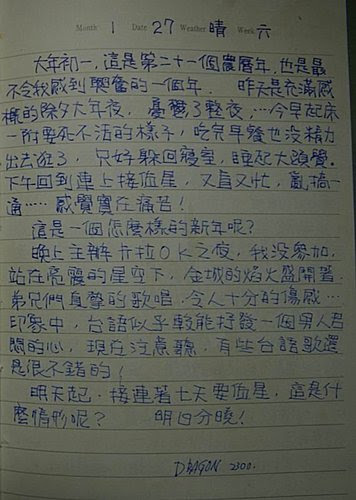 Month 1 Date 27 Weather 晴 Week 六
大年初一,這是第二十一個農曆年,也是最
不令我感到興奮的一個年. 昨天是充滿感
樣的除夕大年夜, 憂鬱了整夜,…今早起床
一附要死不活的樣子,吃完早餐也沒精力
出去逛了, 只好躲回寢室,睡起大頭覺.
下午回到連上接值星,又盲又忙,亂搞一
通…… 感覺實在痛苦!
這是一個怎麼樣的新年呢?
晚上主辦卡拉OK之夜,我沒參加,
站在亮麗的星空下,金城的焰火盛開著.
弟兄們真聲的歌唱.令人十分的傷感…
印象中,台語似乎較能抒發一個男人苦
悶的心,現在注意聽,有些台語歌還
是很不錯的!
明天起.接連著七天要值星,這是什
麼情形呢? 明日分曉!
DRAGON 2300.